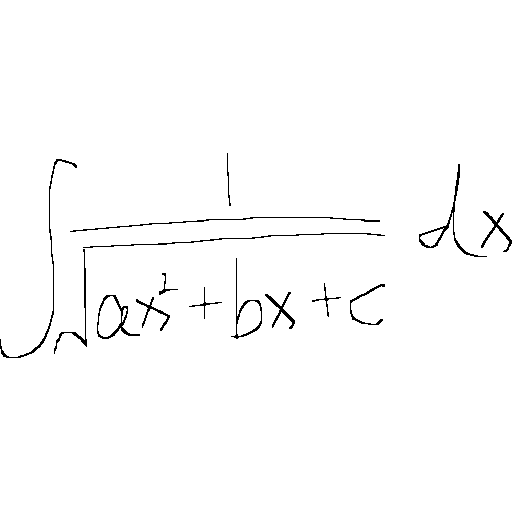 \int \frac{1}{\sqrt{ax^2+bx+c}} dx